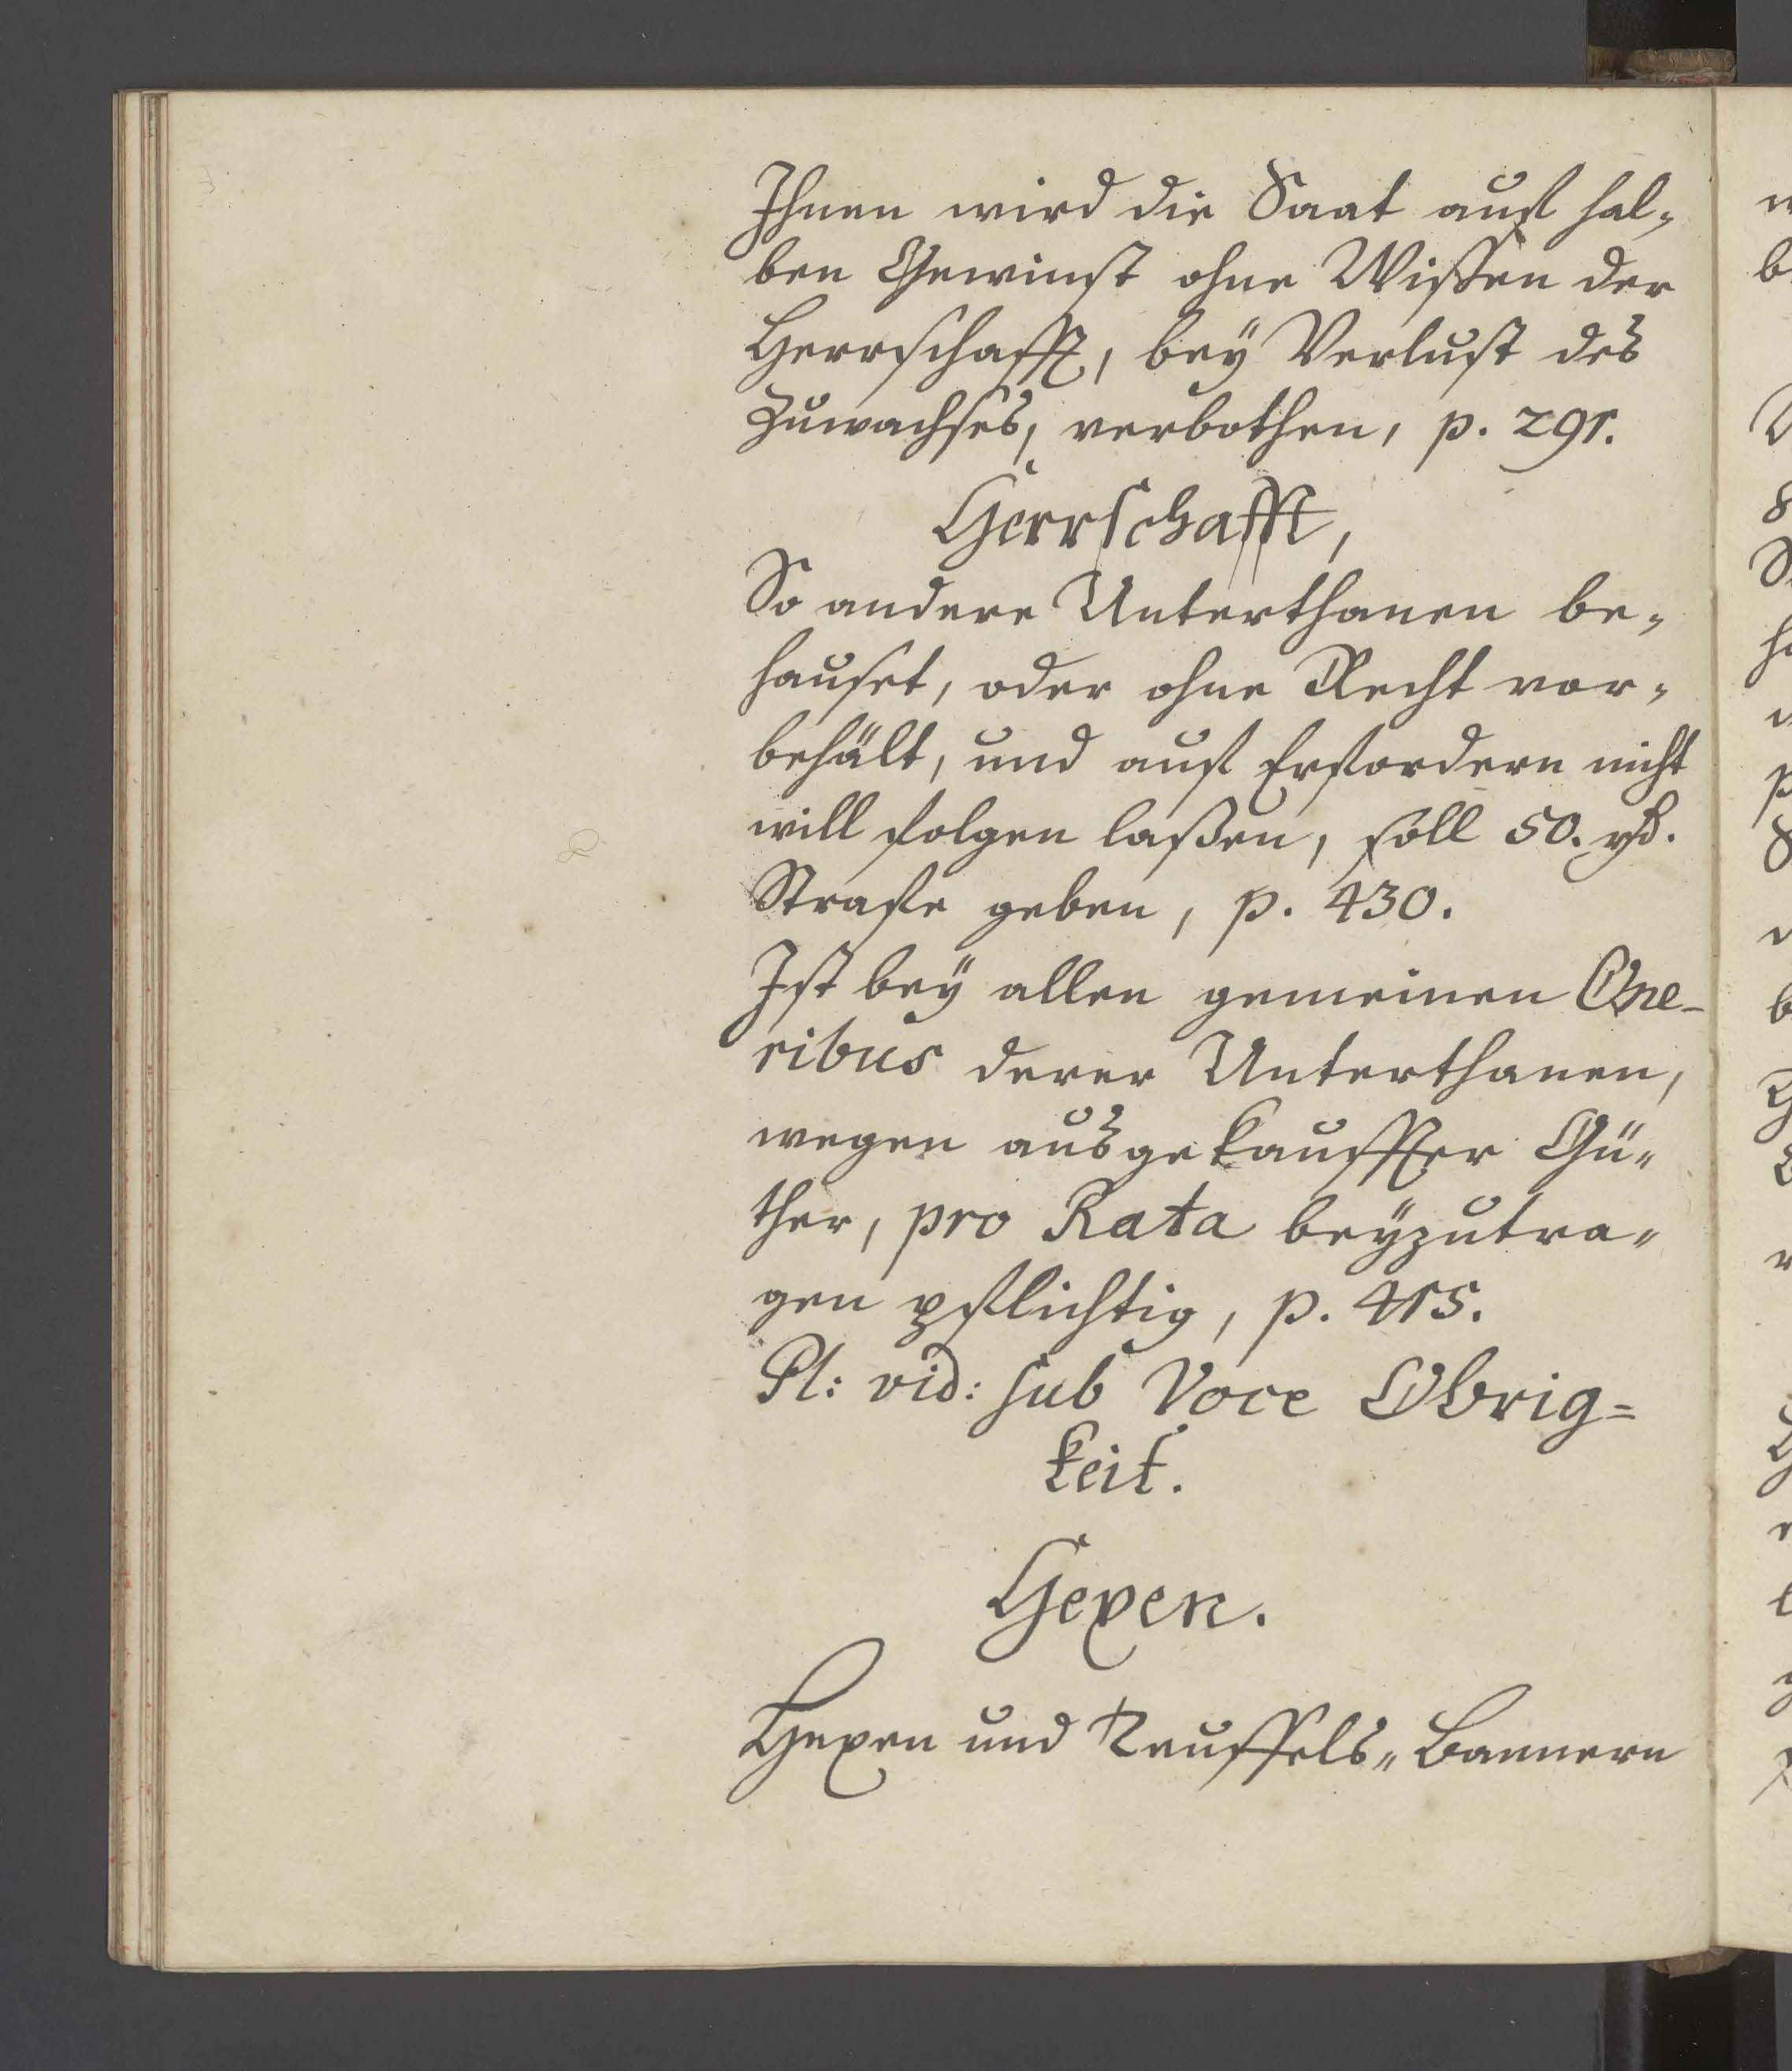 Ihnen wird die Saat auf hal„
ben Gewinst ohne Wißen der
Herrschafft, bey Verlust des
Zuwachses, verbothen, p. 291.
Herrschafft,
So andere Unterthanen be„
hauset, oder ohne Recht vor„
behält, und auf Erfordern nicht
will folgen laßen, soll 50.
Strafe geben, p. 430.
Ist bey allen gemeinen One-
ribus derer Unterthanen,
wegen ausgekauffter Gü„
ther, pro Rata beyzutra„
gen pflichtig, p. 415.
Pl: vid: sub Voce Obrig=
keit.
Hexen.
Hexen und Teuffels„Bannern